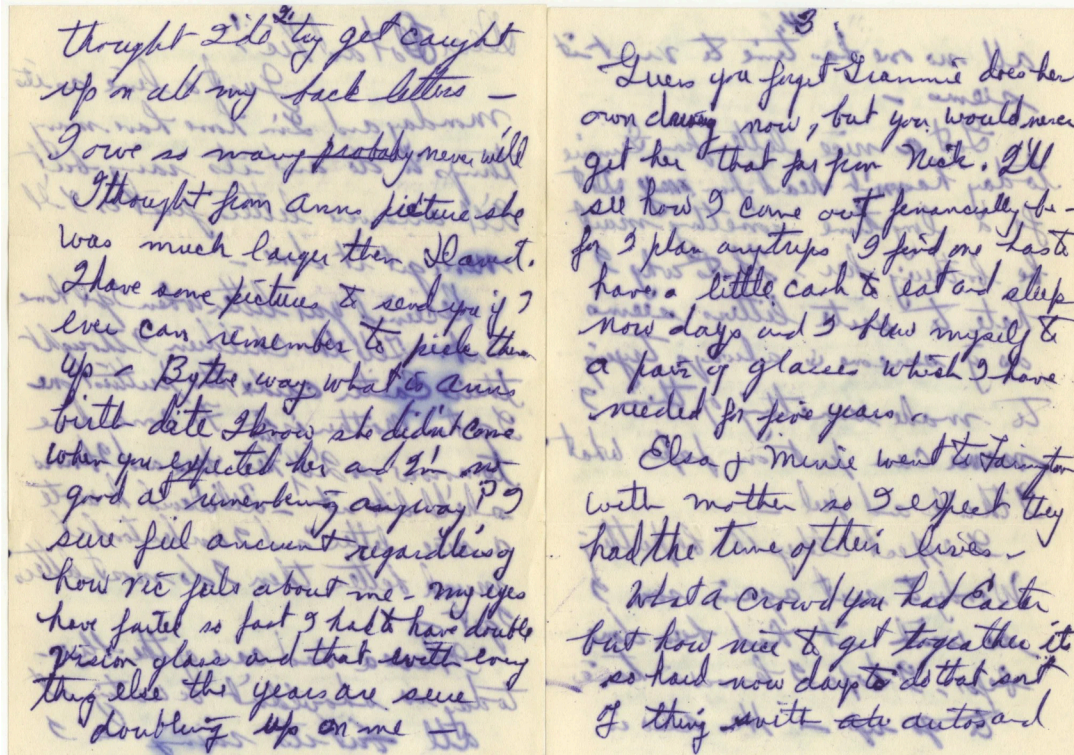 2.
thought I'd try get caught
up on all my back letters –
I owe so many probably never will
I thought from Anns picture she
was much larger then David.
I have some pictures to send you if I
ever can remember to pick them
up – By the way what is Anns
birth date I know she didn't come
when you expected her and I'm no
good at remembering anyway? I
sure feel ancient regardless of
how Vic feels about me – my eyes
have failed so fast I had to have double
vision glass and that with every
thing else the years are sure
doubling up on me –
3.
Guess you forgot Grannie does her
own driving now, but you would never
get her that far from Nick. I'll
see how I come out financially be-
for I plan any trips, I find one has to
have a little cash to eat and sleep
now days and I blew myself to
a pair of glasses which I have
needed for five years.
Elsa & Minie went to
with mother so I expect they
had the time of their lives –
What a crowd you had Easter
but how nice to get togeather its
so hard now days to do that sort
of thing with autos and